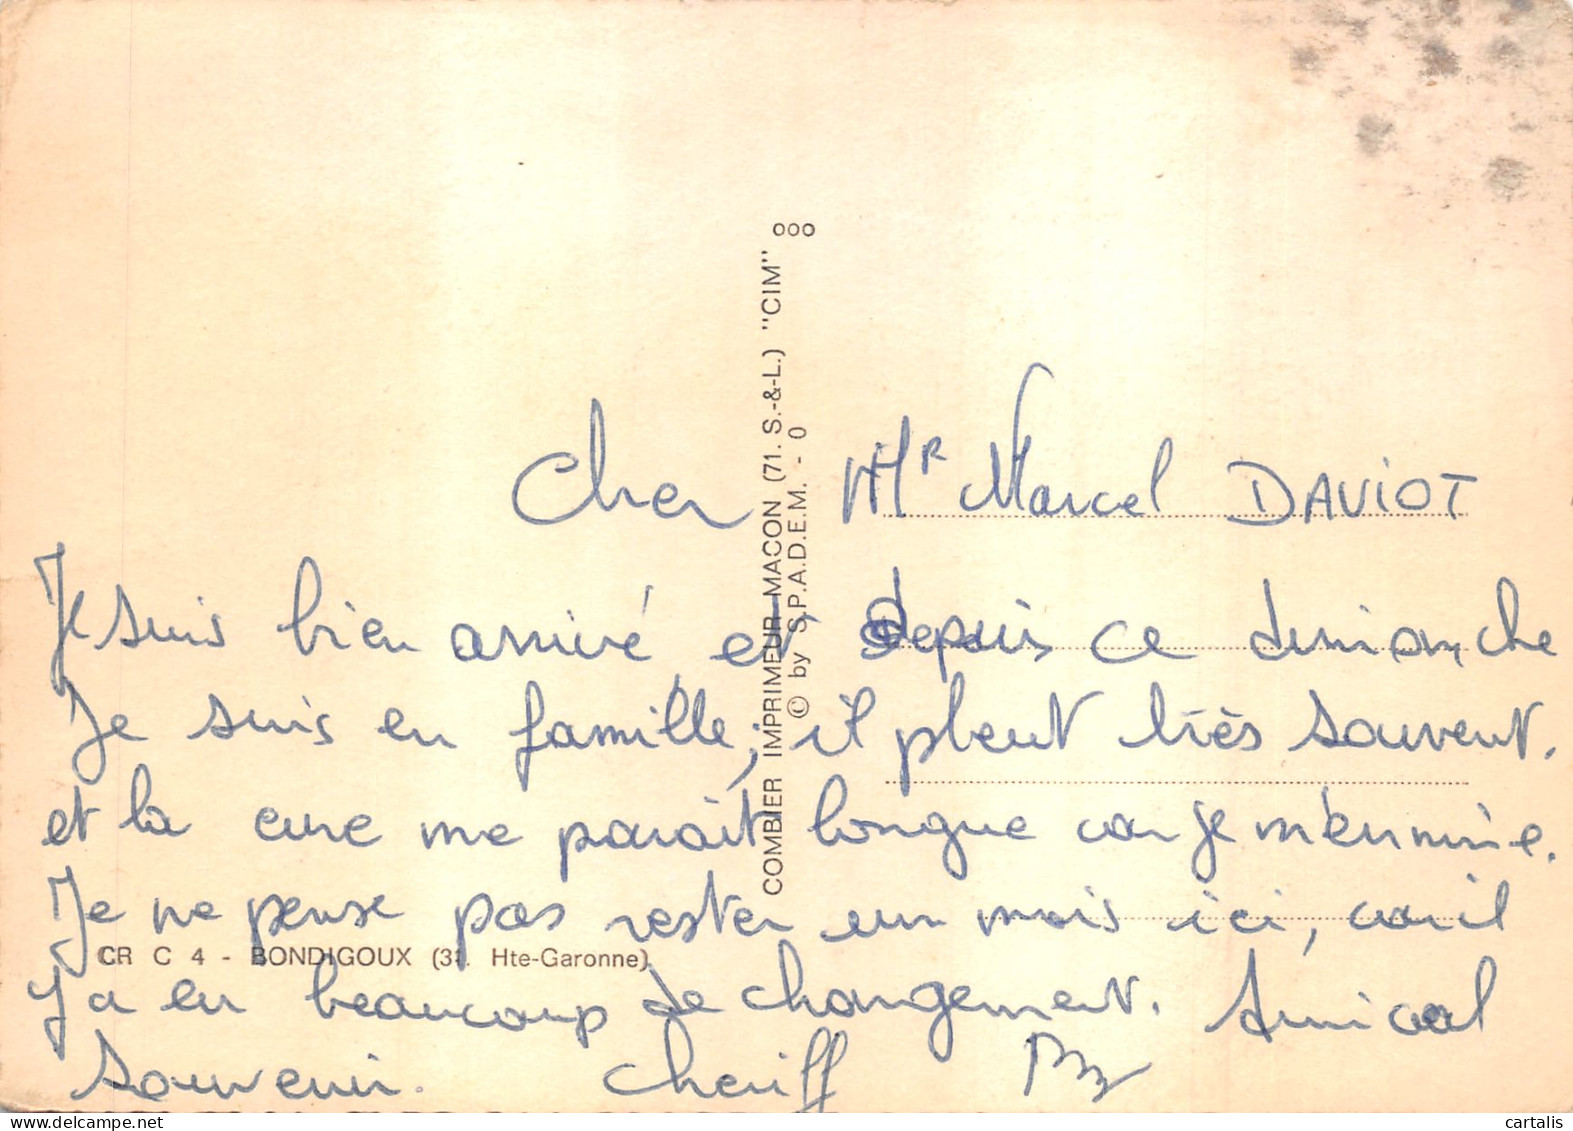 Cher Mr Marcel DAVIOT
Je suis bien arrivé et depuis ce dimanche
Je suis en famille, il pleut très souvent.
et la cure me parait longue car je m'ennuie.
Je ne pense pas rester un mois ici, car il
y a eu beaucoup de changement. Amical
souvenir. Cheriff
CR C 4 - BONDIGOUX (31. Hte-Garonne)
COMBIER IMPRIMEUR MACON (71. S.-&-L.) "CIM"
© by S.P.A.D.E.M. - 0
ooo
cartalis